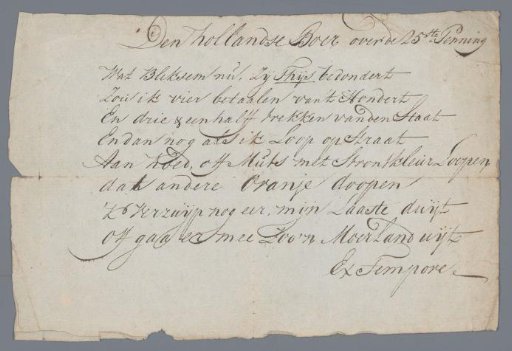 Den hollandse Boer over de 25ste Penning
Wat Bliksem nú, Zÿ Thÿs bedondert
Zou ik vier betaalen vant Hondert
En drie & een half trekken van den Staat
En dan nog als ik Loop op straat
Aan hoed, off Múts met Stront kleur Loopen
dat andere Oranje doopen
'k Verzuÿp nog eer, mijn Laaste duÿt
Off gaa er mee Zoo'n Moerland uÿt
Ex Tempore